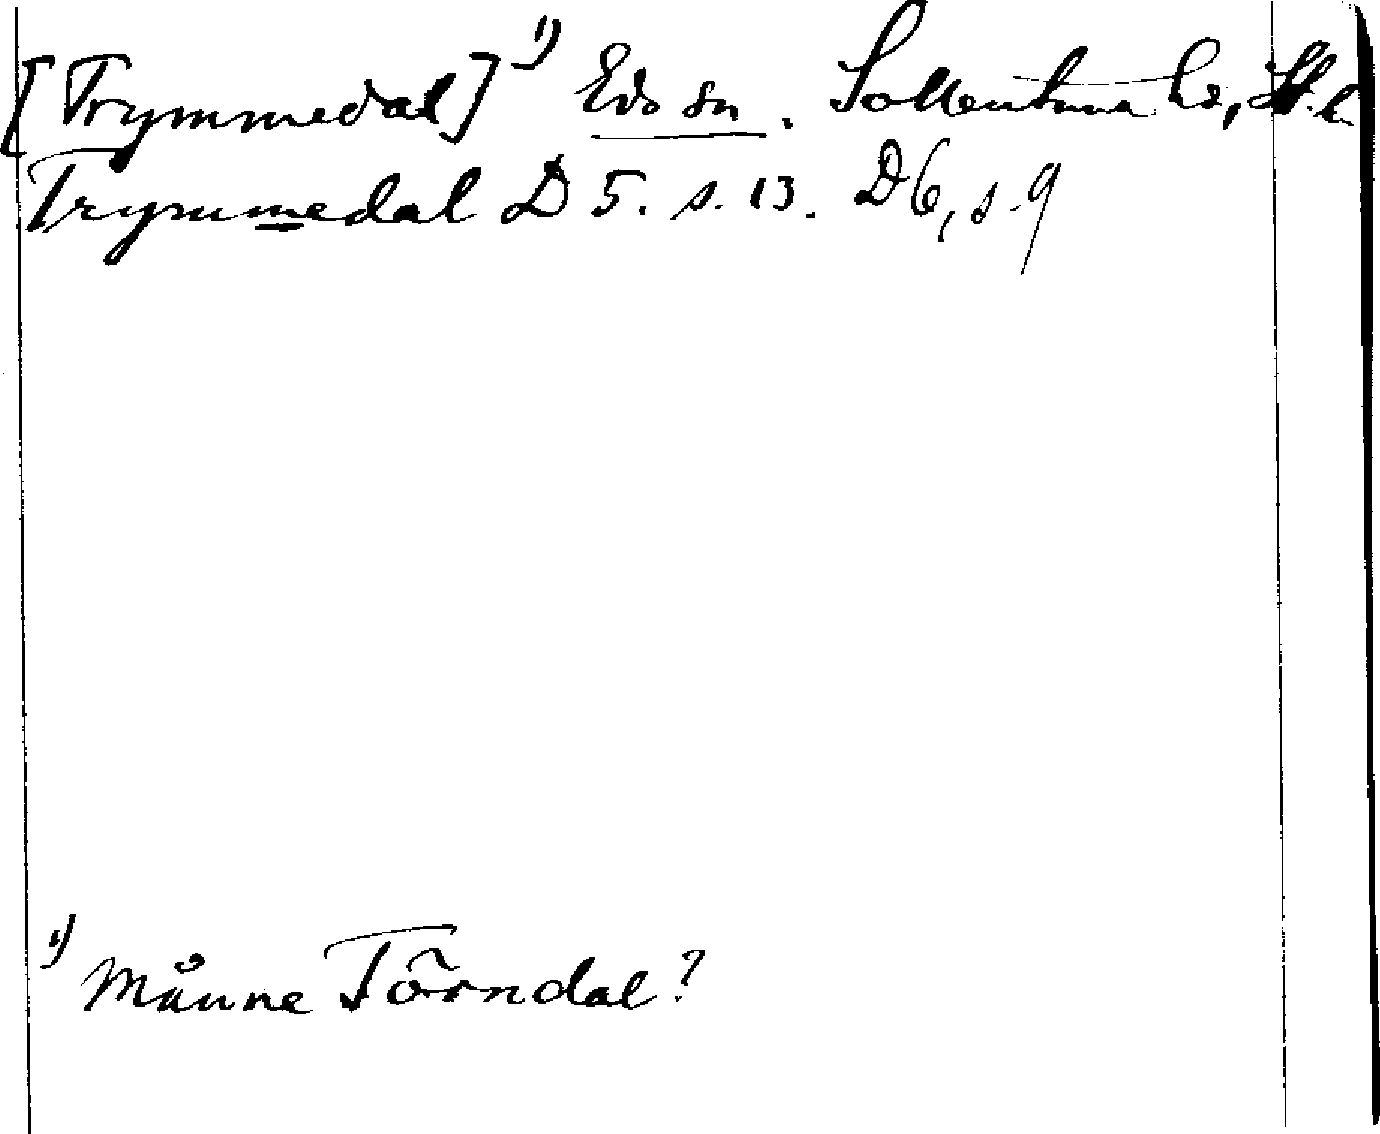 [Trymmedal] 1) Eds sn. Sollentuna hd, St. l.
Trymmedal D 5. s. 13. D6, s. 9
1) Månne Törndal?